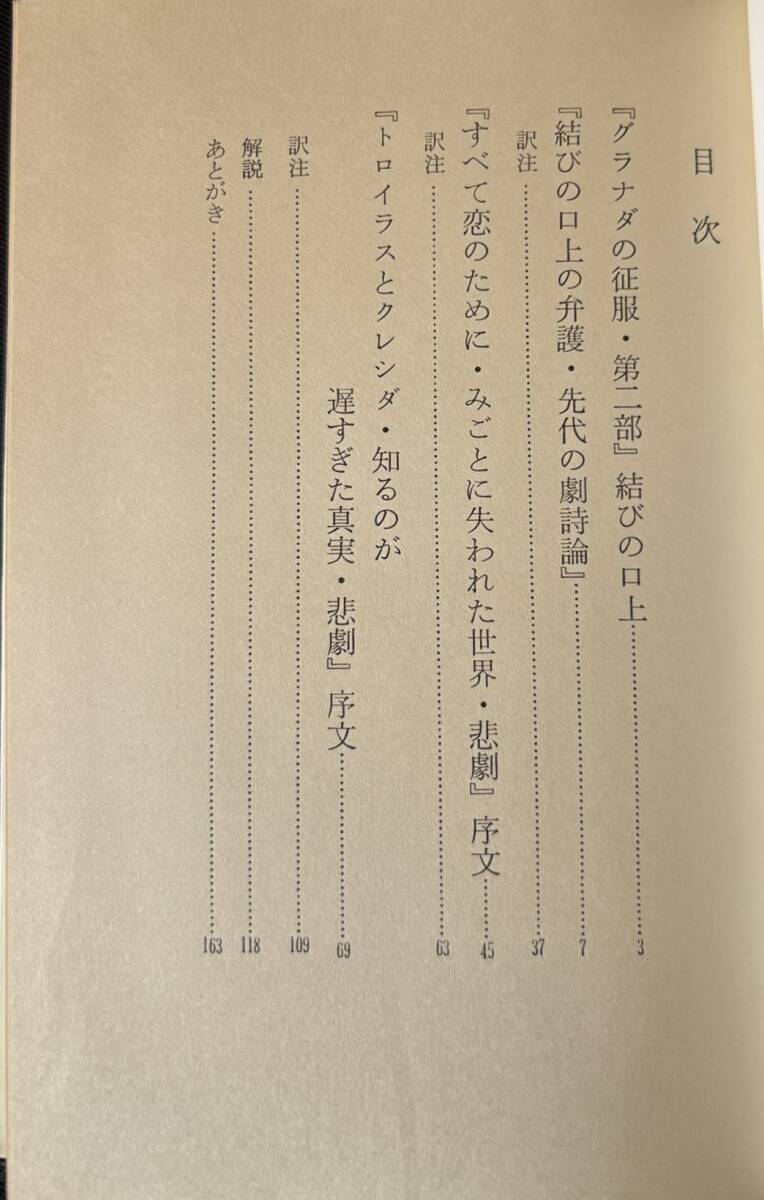 目次
『グラナダの征服・第二部』結びの口上……3
『結びの口上の弁護・先代の劇詩論』……7
訳注……37
『すべて恋のために・みごとに失われた世界・悲劇』序文……45
訳注……63
『トロイラスとクレシダ・知るのが
遅すぎた真実・悲劇』序文……69
訳注……109
解説……118
あとがき……163